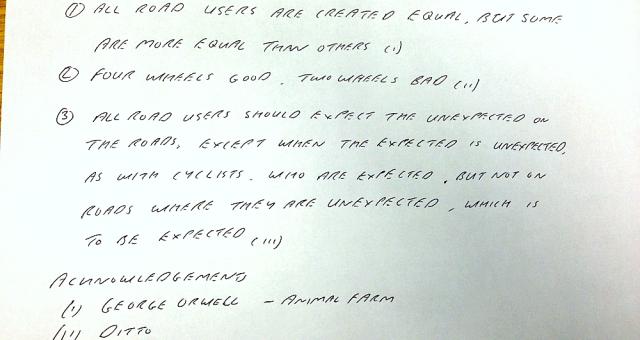 ① ALL ROAD USERS ARE CREATED EQUAL, BUT SOME
ARE MORE EQUAL THAN OTHERS (I)
② FOUR WHEELS GOOD. TWO WHEELS BAD (II)
③ ALL ROAD USERS SHOULD EXPECT THE UNEXPECTED ON
THE ROADS, EXCEPT WHEN THE EXPECTED IS UNEXPECTED,
AS WITH CYCLISTS. WHO ARE EXPECTED, BUT NOT ON
ROADS WHERE THEY ARE UNEXPECTED, WHICH IS
TO BE EXPECTED (III)
ACKNOWLEDGEMENTS
(I) GEORGE ORWELL - ANIMAL FARM
(II) DITTO